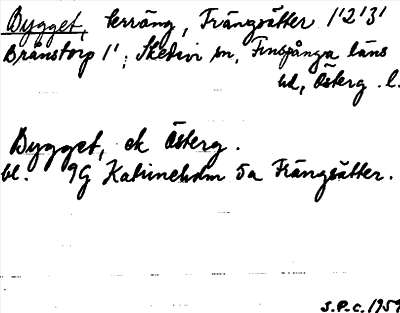 Bygget, terräng, Trängsätter 1'2'3'
Brånstorp 1'; Skedevi sn, Finspånga läns
hd, Österg. l.
Bygget, ek Österg.
bl. 9G Katrineholm 5a Trängsätter.
S.P.C. 1959